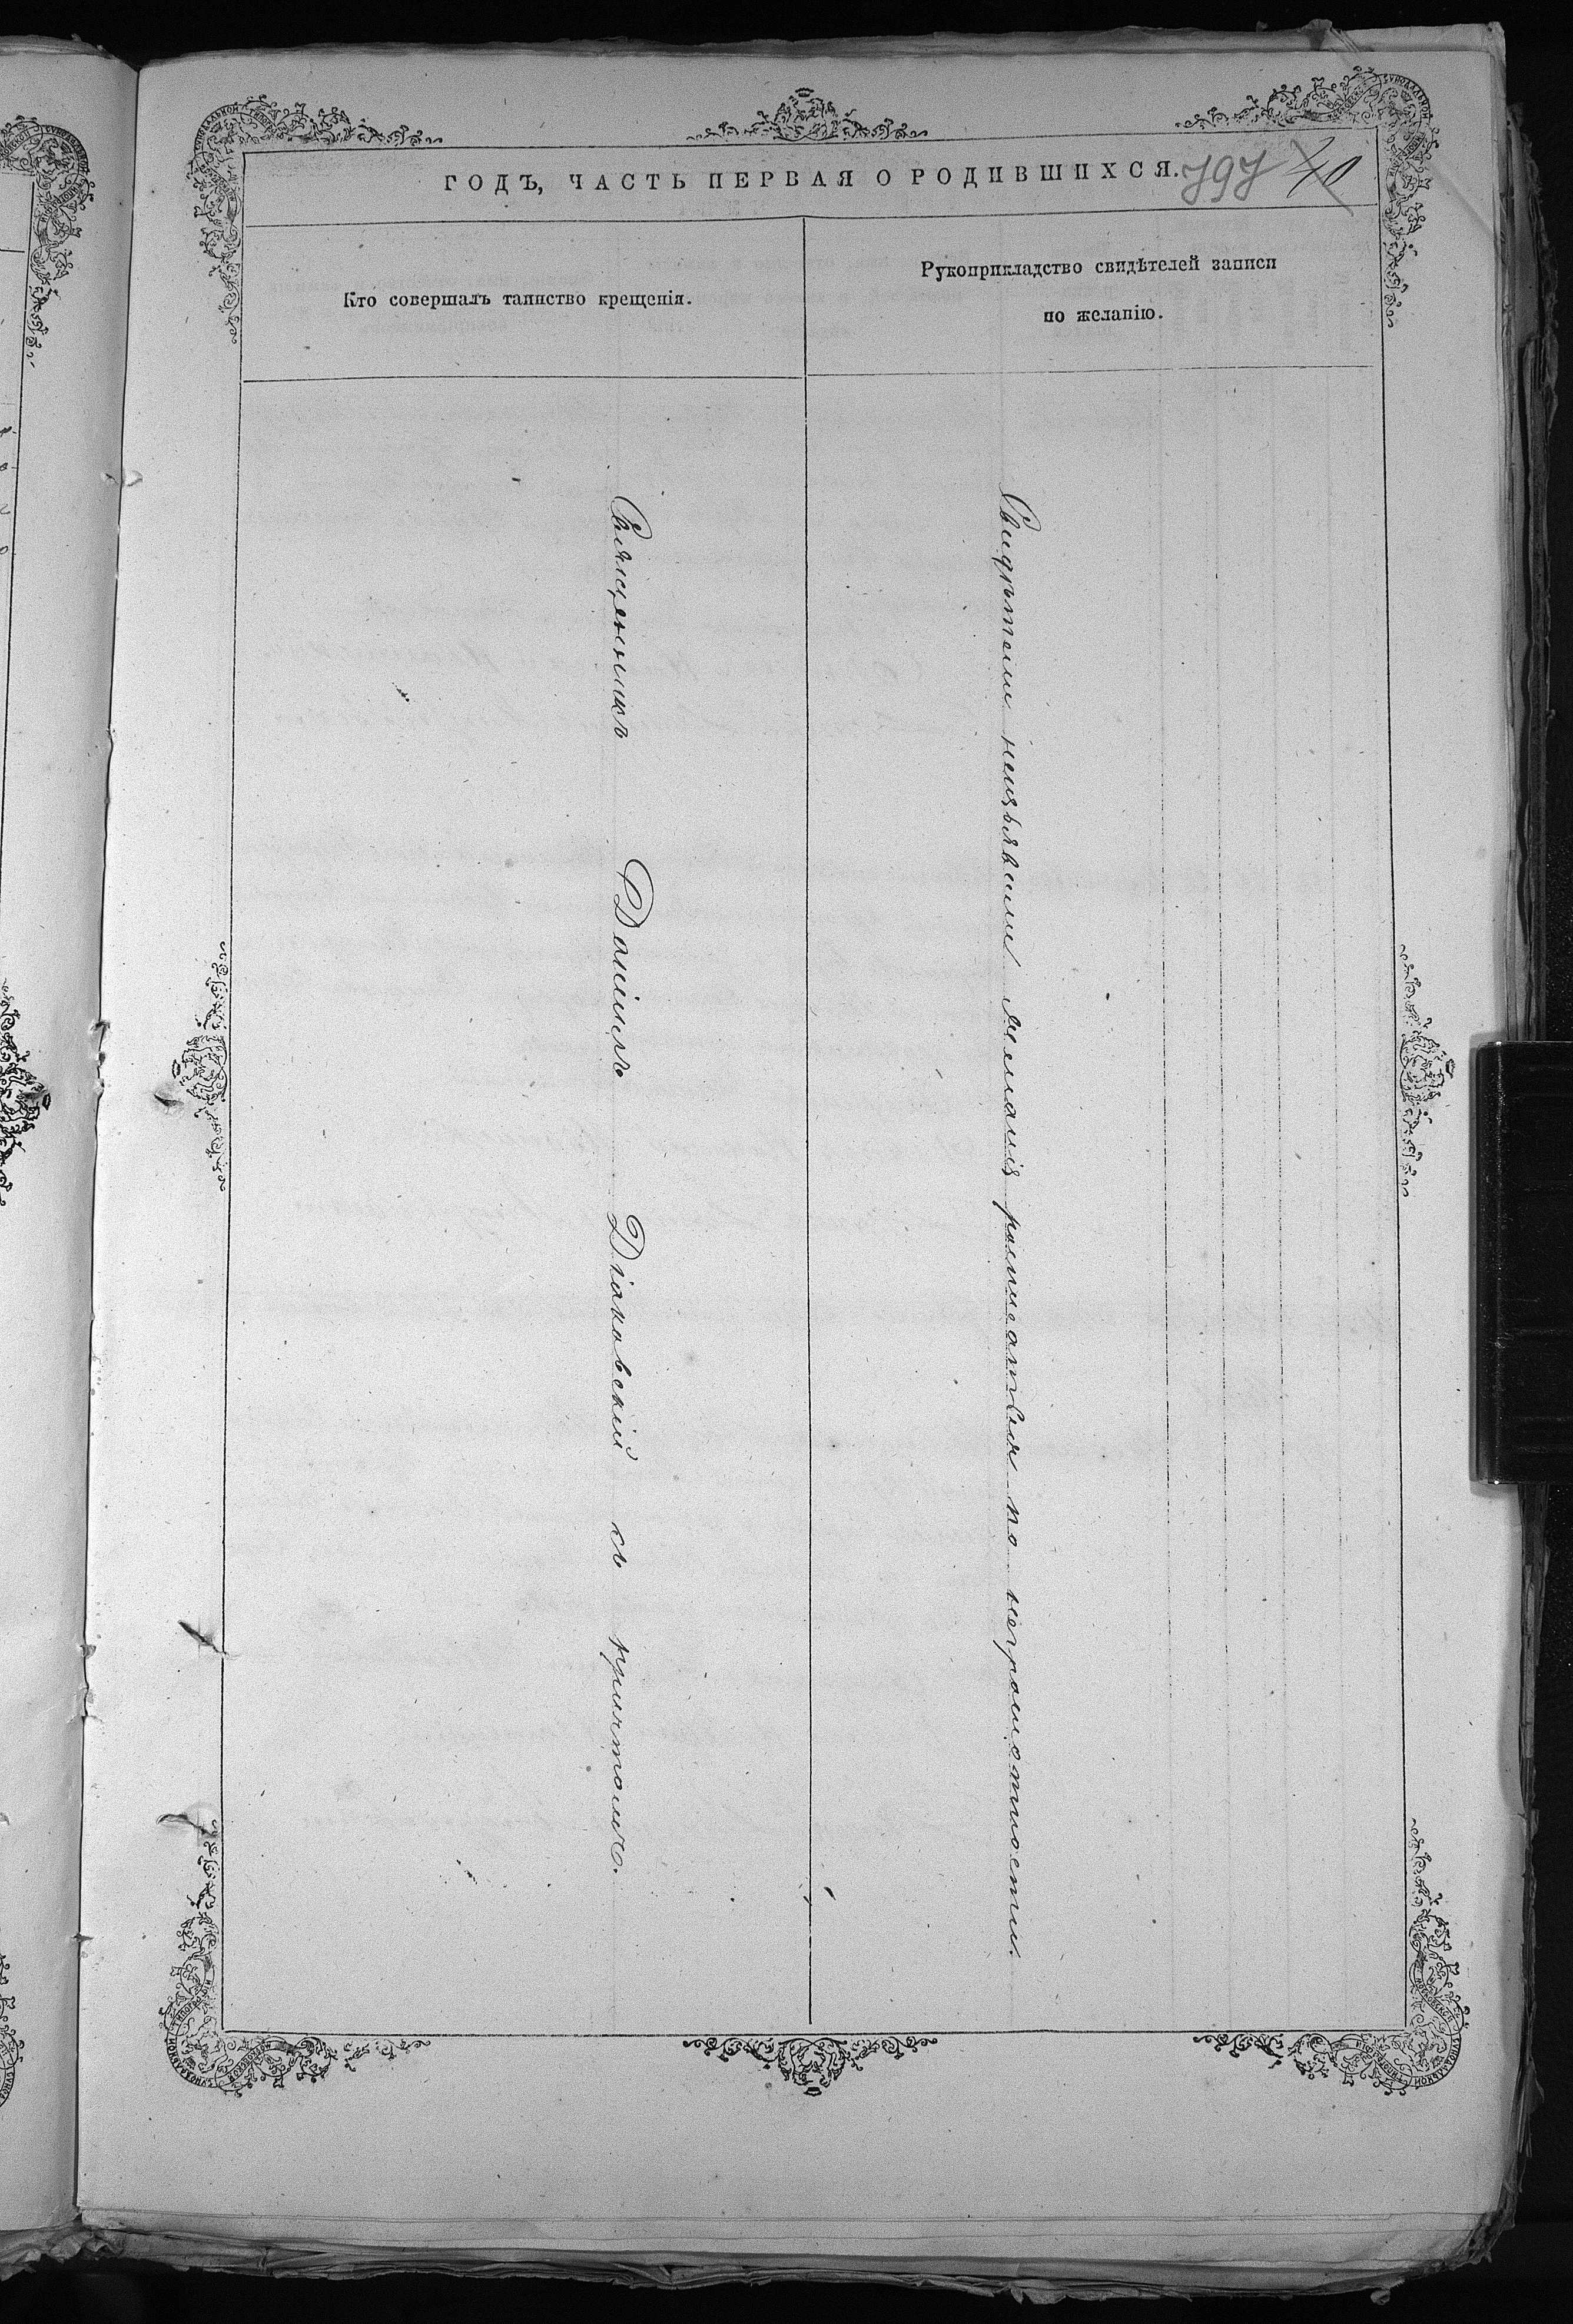 ГОДЪ, ЧАСТЬ ПЕРВАЯ О РОДИВШИХСЯ. 797 40
Кто совершалъ таинство крещенія.
Рукоприкладство свидѣтелей записи
по желанію.
Священникъ Даніилъ Діаковскій съ причтомъ.
Свидѣтели неизъявили желанія росписатся по неграмотности.